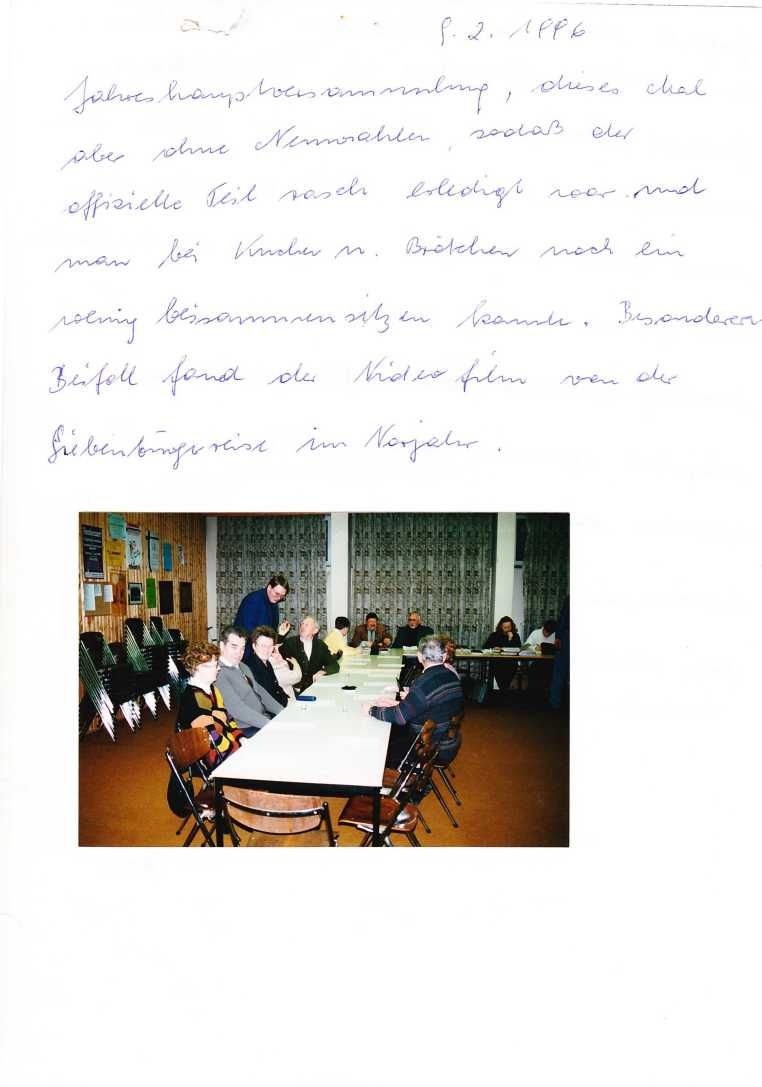 9.2.1996
Jahreshauptversammlung, dieses Mal
aber ohne Neuwahlen, sodaß der
offizielle Teil rasch erledigt war und
man bei Kuchen u. Brötchen noch ein
wenig beisammensitzen konnte. Besonderen
Beifall fand der Videofilm von der
Siebenbürgenreise im Vorjahr.